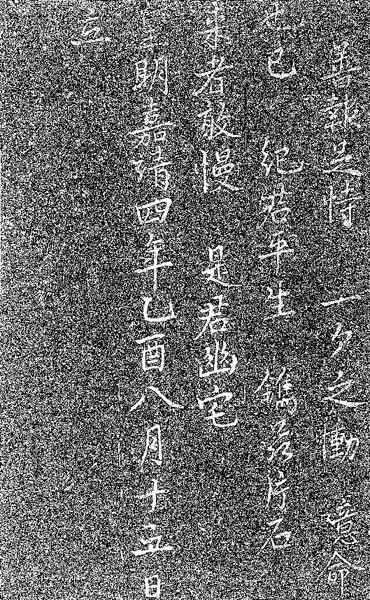 善報足恃 一夕之慟 噫命
也已 紀君平生 鐫茲片石
來者敢慢 是君幽宅
皇明嘉靖四年乙酉八月十五日
立